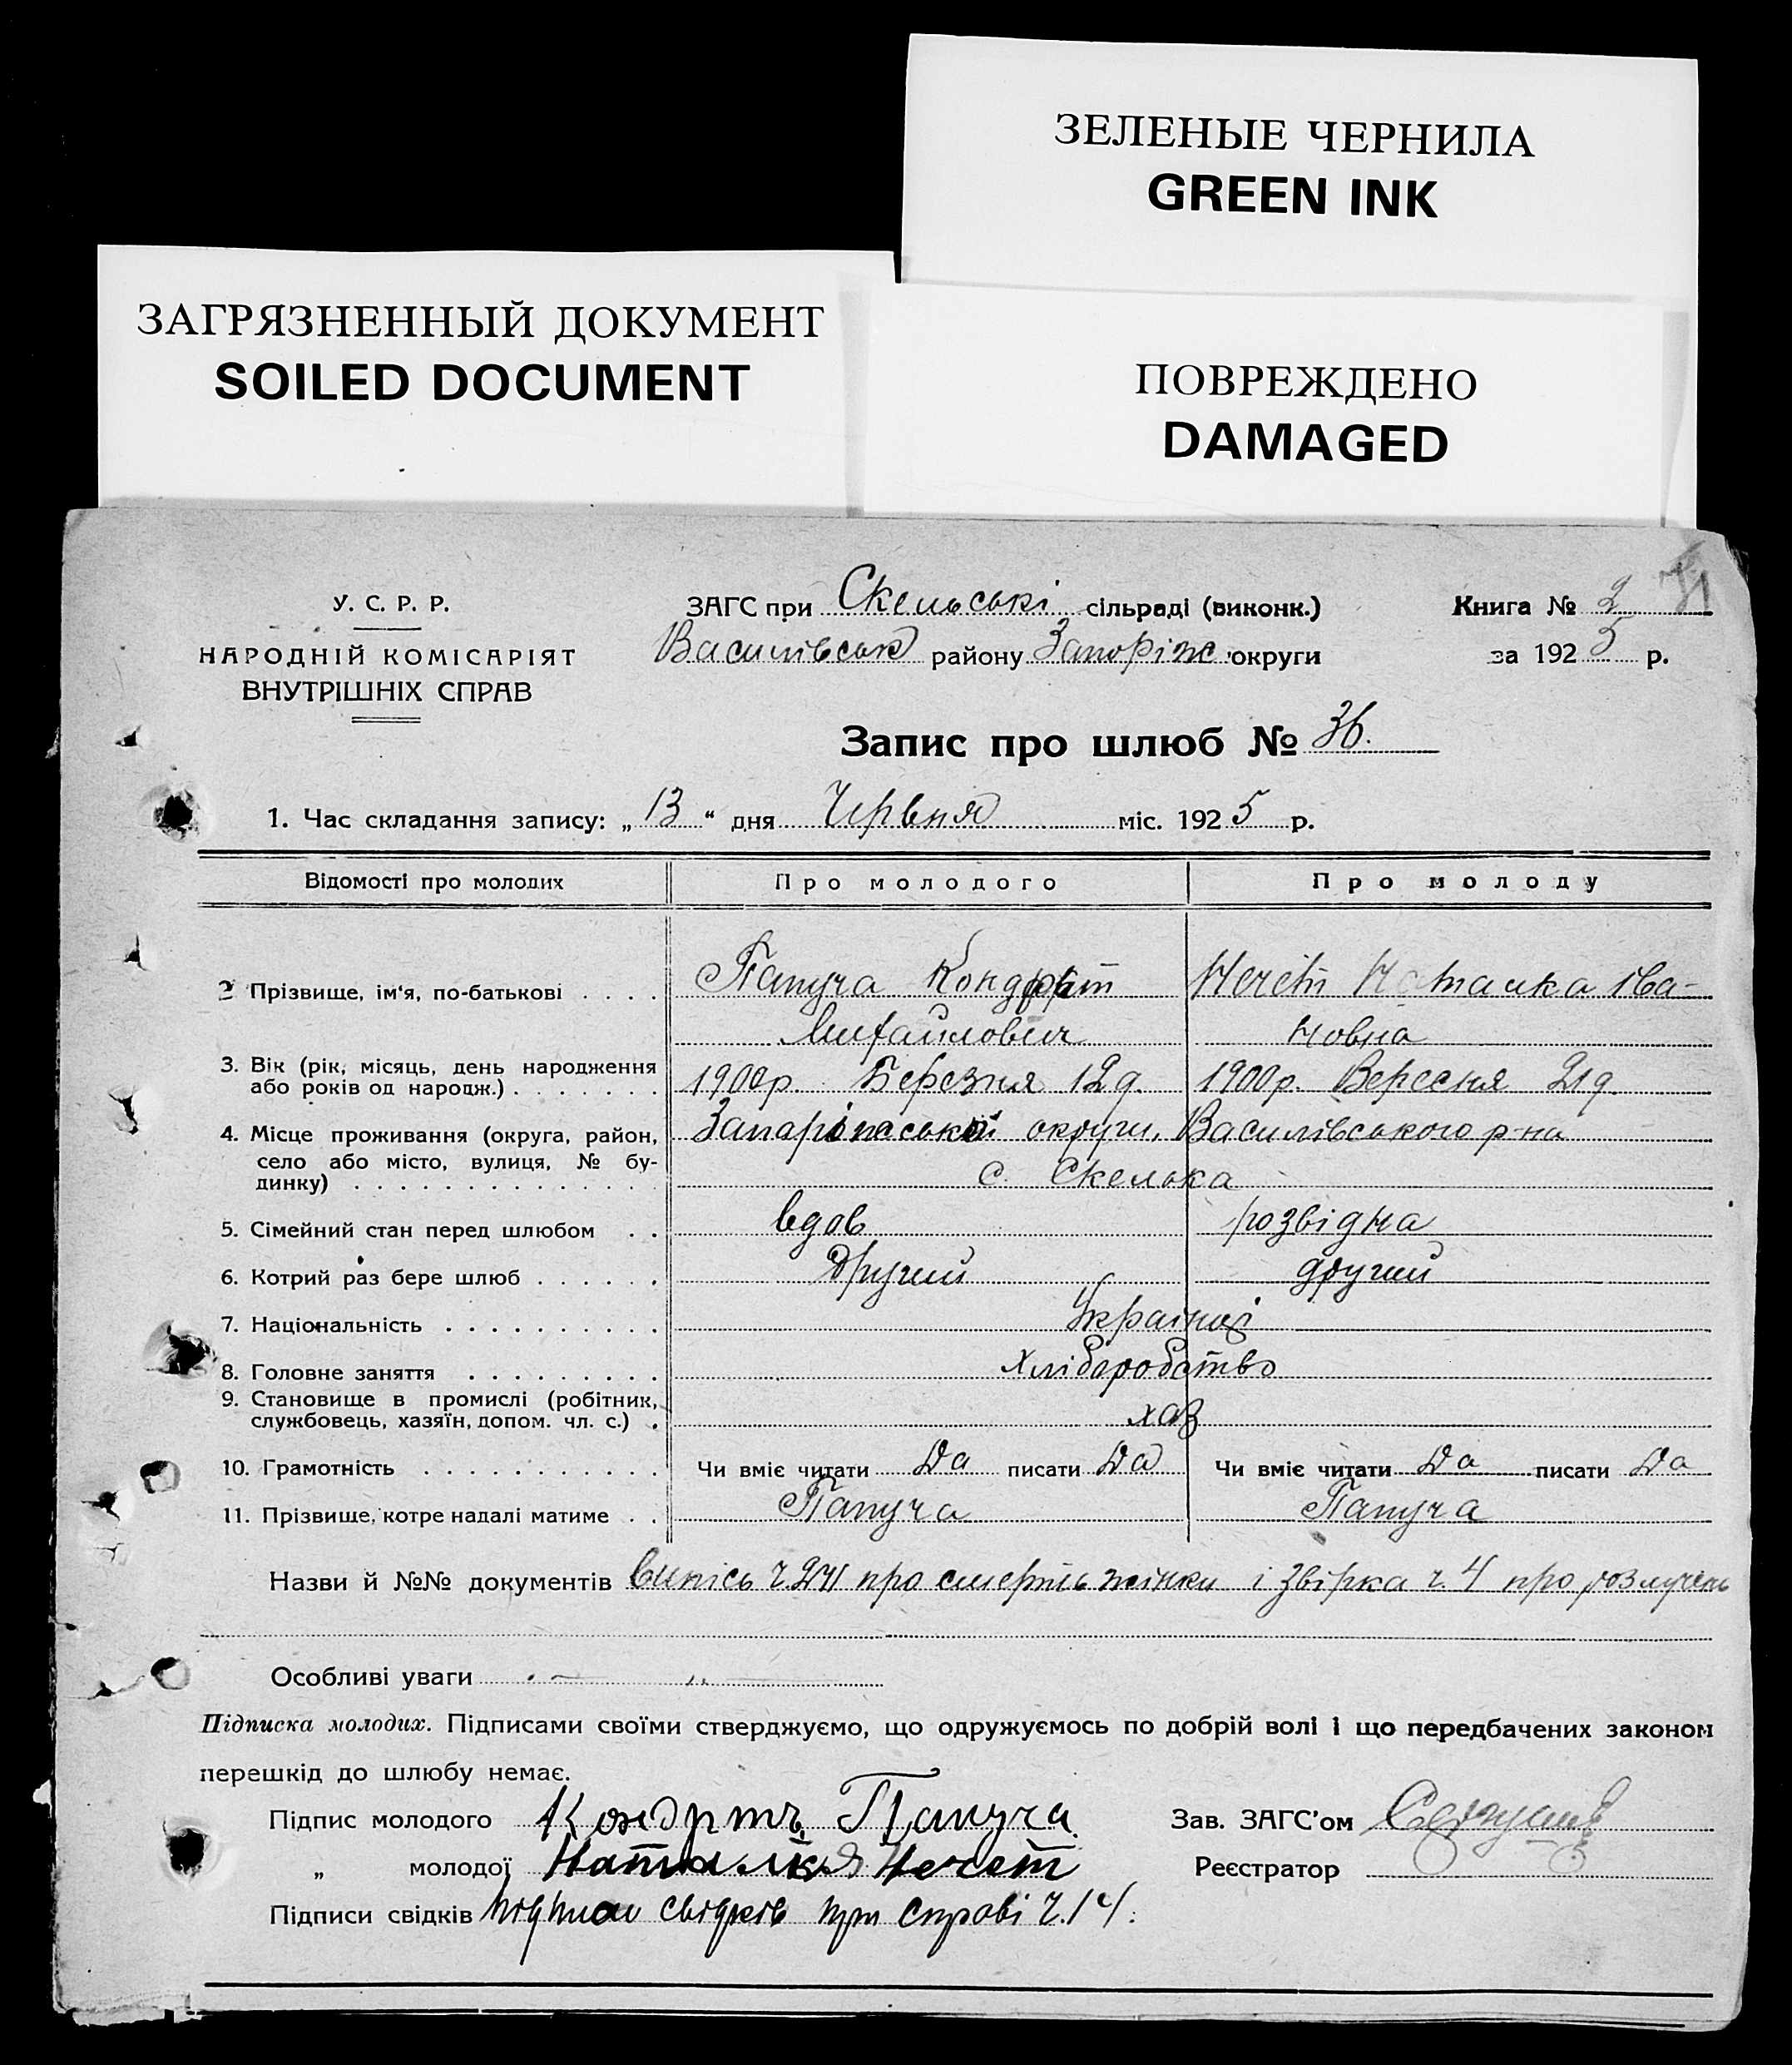 ЗЕЛЕНЫЕ ЧЕРНИЛА
GREEN INK
ЗАГРЯЗНЕННЫЙ ДОКУМЕНТ
SOILED DOCUMENT
ПОВРЕЖДЕНО
DAMAGED
У. С. Р. Р.
НАРОДНІЙ КОМІСАРІЯТ
ВНУТРІШНІХ СПРАВ
ЗАГС при Скельські сільраді (виконк.)
Василівськ району Запоріж округи
Книга № 2
за 1925 р.
Запис про шлюб № 36.
1. Час складання запису: „13“ дня Червня міс. 1925 р.
Відомості про молодих Про молодого Про молоду
2 Прізвище, ім‘я, по-батькові . . . . Папуча Кондрат Михайлович Нечет Наталка Івановна
3. Вік (рік, місяць, день народження
або років од народж.) . . . . . . . 1900р. Березня 12д. 1900р. Вересня 21д
4. Місце проживання (округа, район, Запоріжської округи, Василівського р-на
село або місто, вулиця, № бу-
динку) . . . . . . . . . . . . . . с. Скелька
5. Сімейний стан перед шлюбом . . вдов розвідна
6. Котрий раз бере шлюб . . . . . . Другий другий
7. Національність . . . . . . . . . . Українці
8. Головне заняття . . . . . . . . . хліборобство
9. Становище в промислі (робітник,
службовець, хазяїн, допом. чл. с.) . хаз
10. Грамотність . . . . . . . . . . . Чи вміє читати Да писати Да Чи вміє читати Да писати Да
11. Прізвище, котре надалі матиме . . Папуча Папуча
Назви й №№ документів випісь ч. 24 про смерть жінки і звірка ч. 4 про розлучень
Особливі уваги
Підписка молодих. Підписами своїми стверджуємо, що одружуємось по добрій волі і що передбачених законом
перешкід до шлюбу немає.
Підпис молодого Кондртъ Папуча Зав. ЗАГС’ом
„ молодої Наталкя Нечет Реєстратор
Підписи свідків підписи свідків при справі ч. 14.